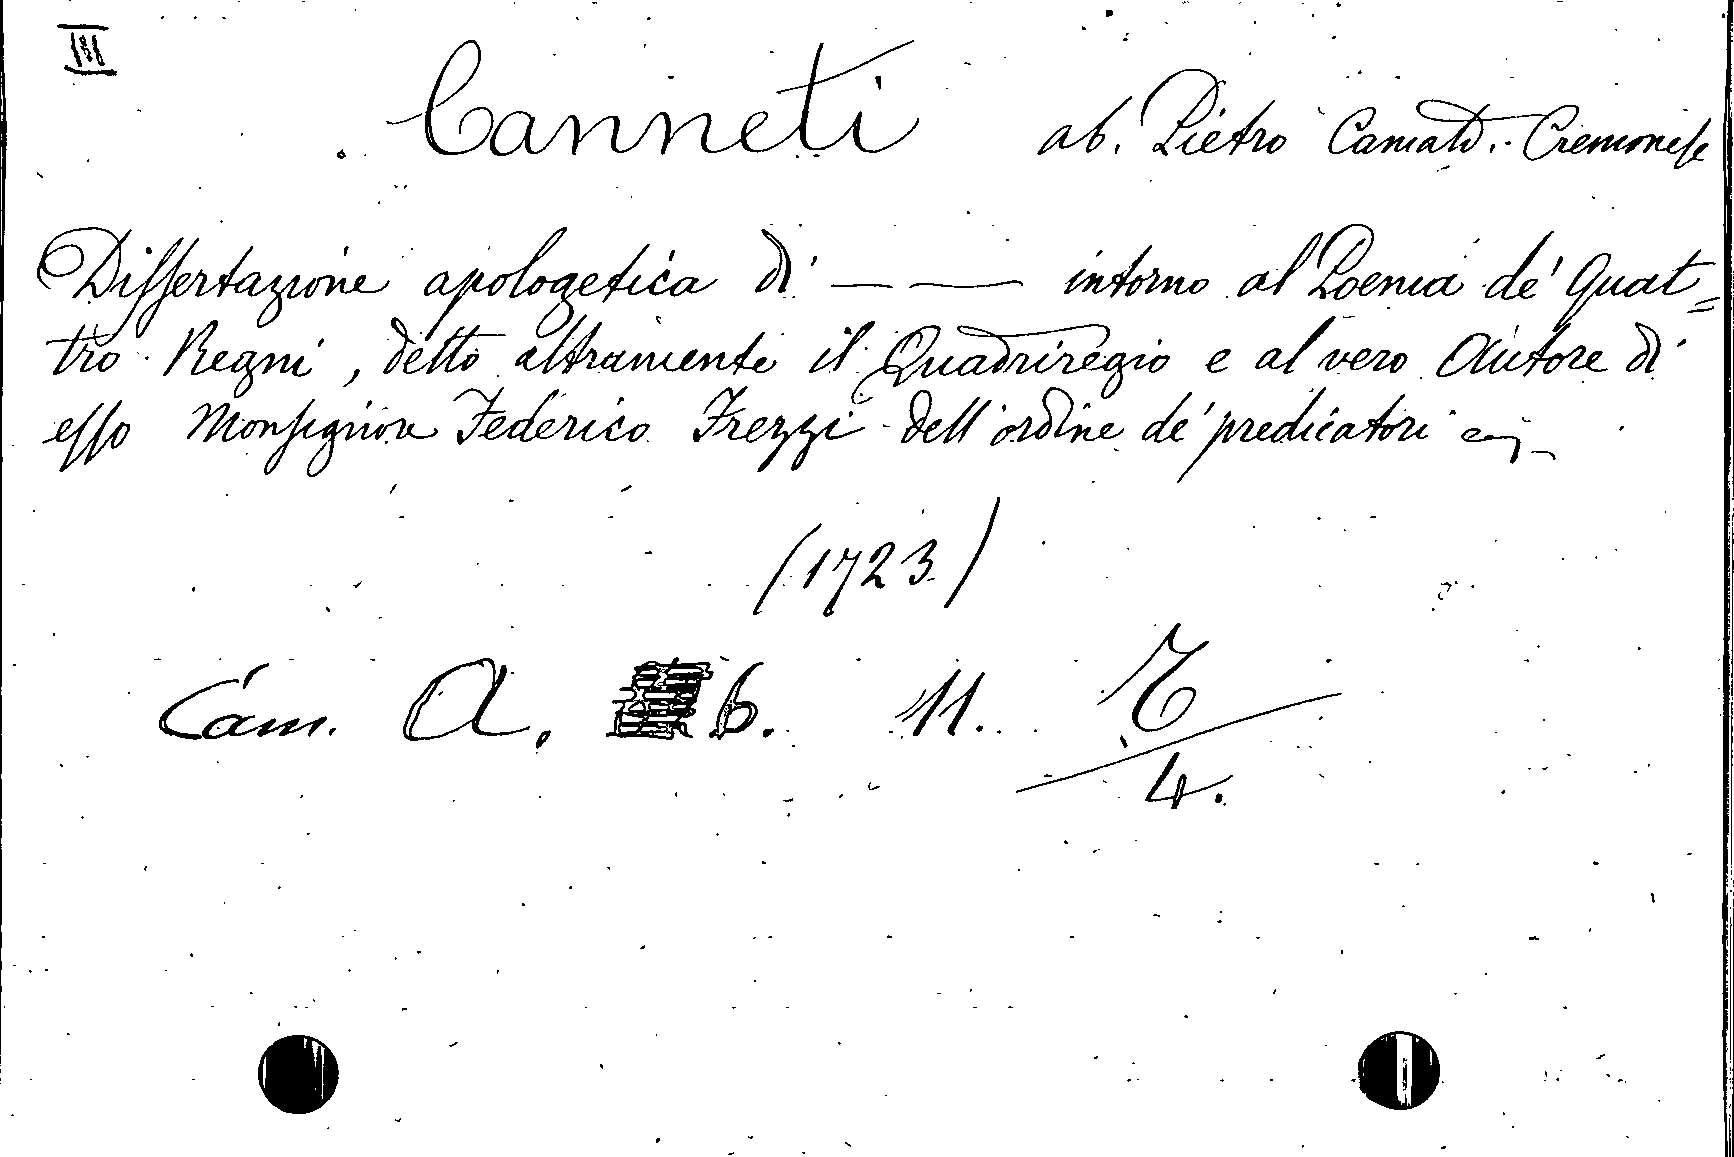 III
Canneti ab. Pietro Camald. Cremonese
Dissertazione apologetica di — — intorno al Poema de' Quat=
tro Regni, detto altramente il Quadriregio e al vero Autore di
esso Monsignore Federico Frezzi dell'ordine de' predicatori
(1723)
Cam. A. b. 11. 
4.